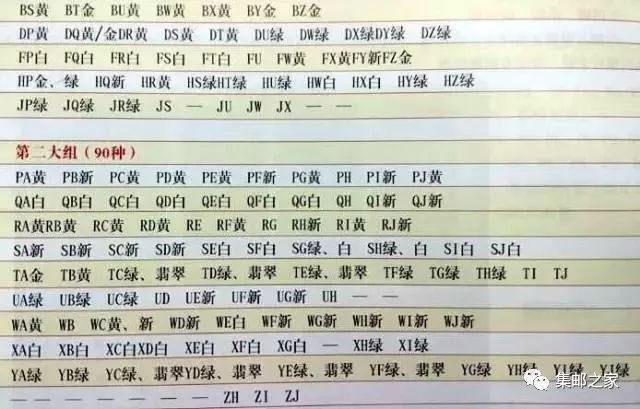 BS黄 BT金 BU黄 BW黄 BX黄 BY金 BZ金
DP黄 DQ黄/金DR黄 DS黄 DT黄 DU绿 DW绿 DX绿DY绿 DZ绿
FP白 FQ白 FR白 FS白 FT白 FU FW黄 FX黄FY新FZ金
HP金、绿 HQ新 HR黄 HS绿HT绿 HU绿 HW白 HX白 HY绿 HZ绿
JP绿 JQ绿 JR绿 JS — JU JW JX — —
第二大组（90种）
PA黄 PB新 PC黄 PD黄 PE黄 PF新 PG黄 PH PI新 PJ黄
QA白 QB白 QC白 QD白 QE白 QF白 QG白 QH QI新 QJ新
RA黄RB黄 RC黄 RD黄 RE RF黄 RG RH新 RI黄 RJ新
SA新 SB新 SC新 SD新 SE白 SF白 SG绿、白 SH绿、白 SI白 SJ白
TA金 TB黄 TC绿、翡翠 TD绿、翡翠 TE绿、翡翠 TF绿 TG绿 TH绿 TI TJ
UA绿 UB绿 UC绿 UD UE新 UF新 UG新 UH — —
WA黄 WB WC黄、新 WD新 WE白 WF新 WG新 WH新 WI新 WJ新
XA白 XB白 XC白XD白 XE白 XF白 XG白 — XH绿 XI绿
YA绿 YB绿 YC绿、翡翠YD绿、翡翠 YE绿、翡翠 YF绿、翡翠 YG绿 YH绿 YI绿 YJ绿
— — — — — — — ZH ZI ZJ
集邮之家